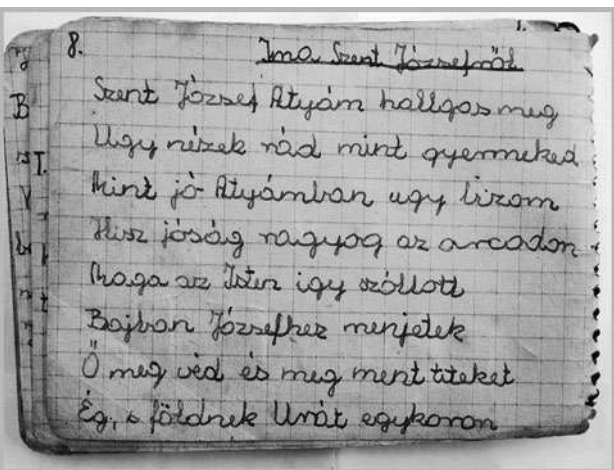 8. Ima Szent Józsefről
Szent József Atyám hallgas meg
Ugy nézek rád mint gyermeked
Mint jó Atyámban ugy bizom
Hisz jóság ragyog az arcodon
Maga az Isten igy szóllott
Bajban Józsefhez menjetek
Ő meg véd és meg ment titeket
Ég, s földnek Urát egykoron